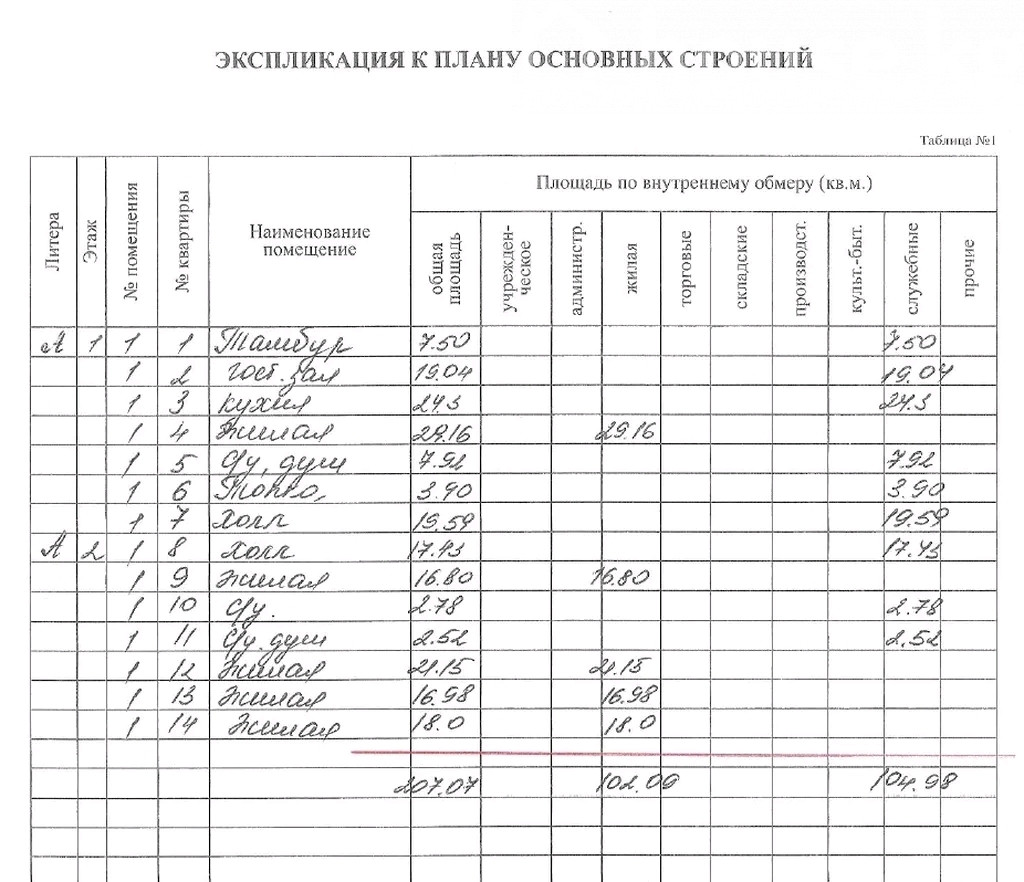 ЭКСПЛИКАЦИЯ К ПЛАНУ ОСНОВНЫХ СТРОЕНИЙ
Таблица №1
Литера Этаж № помещения № квартиры Наименование помещение Площадь по внутреннему обмеру (кв.м.)
общая площадь учрежден-ческое администр. жилая торговые складские производст. культ.-быт. служебные прочие
А 1 1 1 Тамбур 7.50 7.50
1 2 гост. зал 19.04 19.04
1 3 кухня 24.3 24.3
1 4 Жилая 29.16 29.16
1 5 С/у, душ 7.92 7.92
1 6 3.90 3.90
1 7 Холл 19.59 19.59
А 2 1 8 Холл 17.43 17.43
1 9 Жилая 16.80 16.80
1 10 С/у. 2.78 2.78
1 11 С/у. душ 2.52 2.52
1 12 Жилая 21.15 21.15
1 13 Жилая 16.98 16.98
1 14 Жилая 18.0 18.0
207.07 102.09 104.98